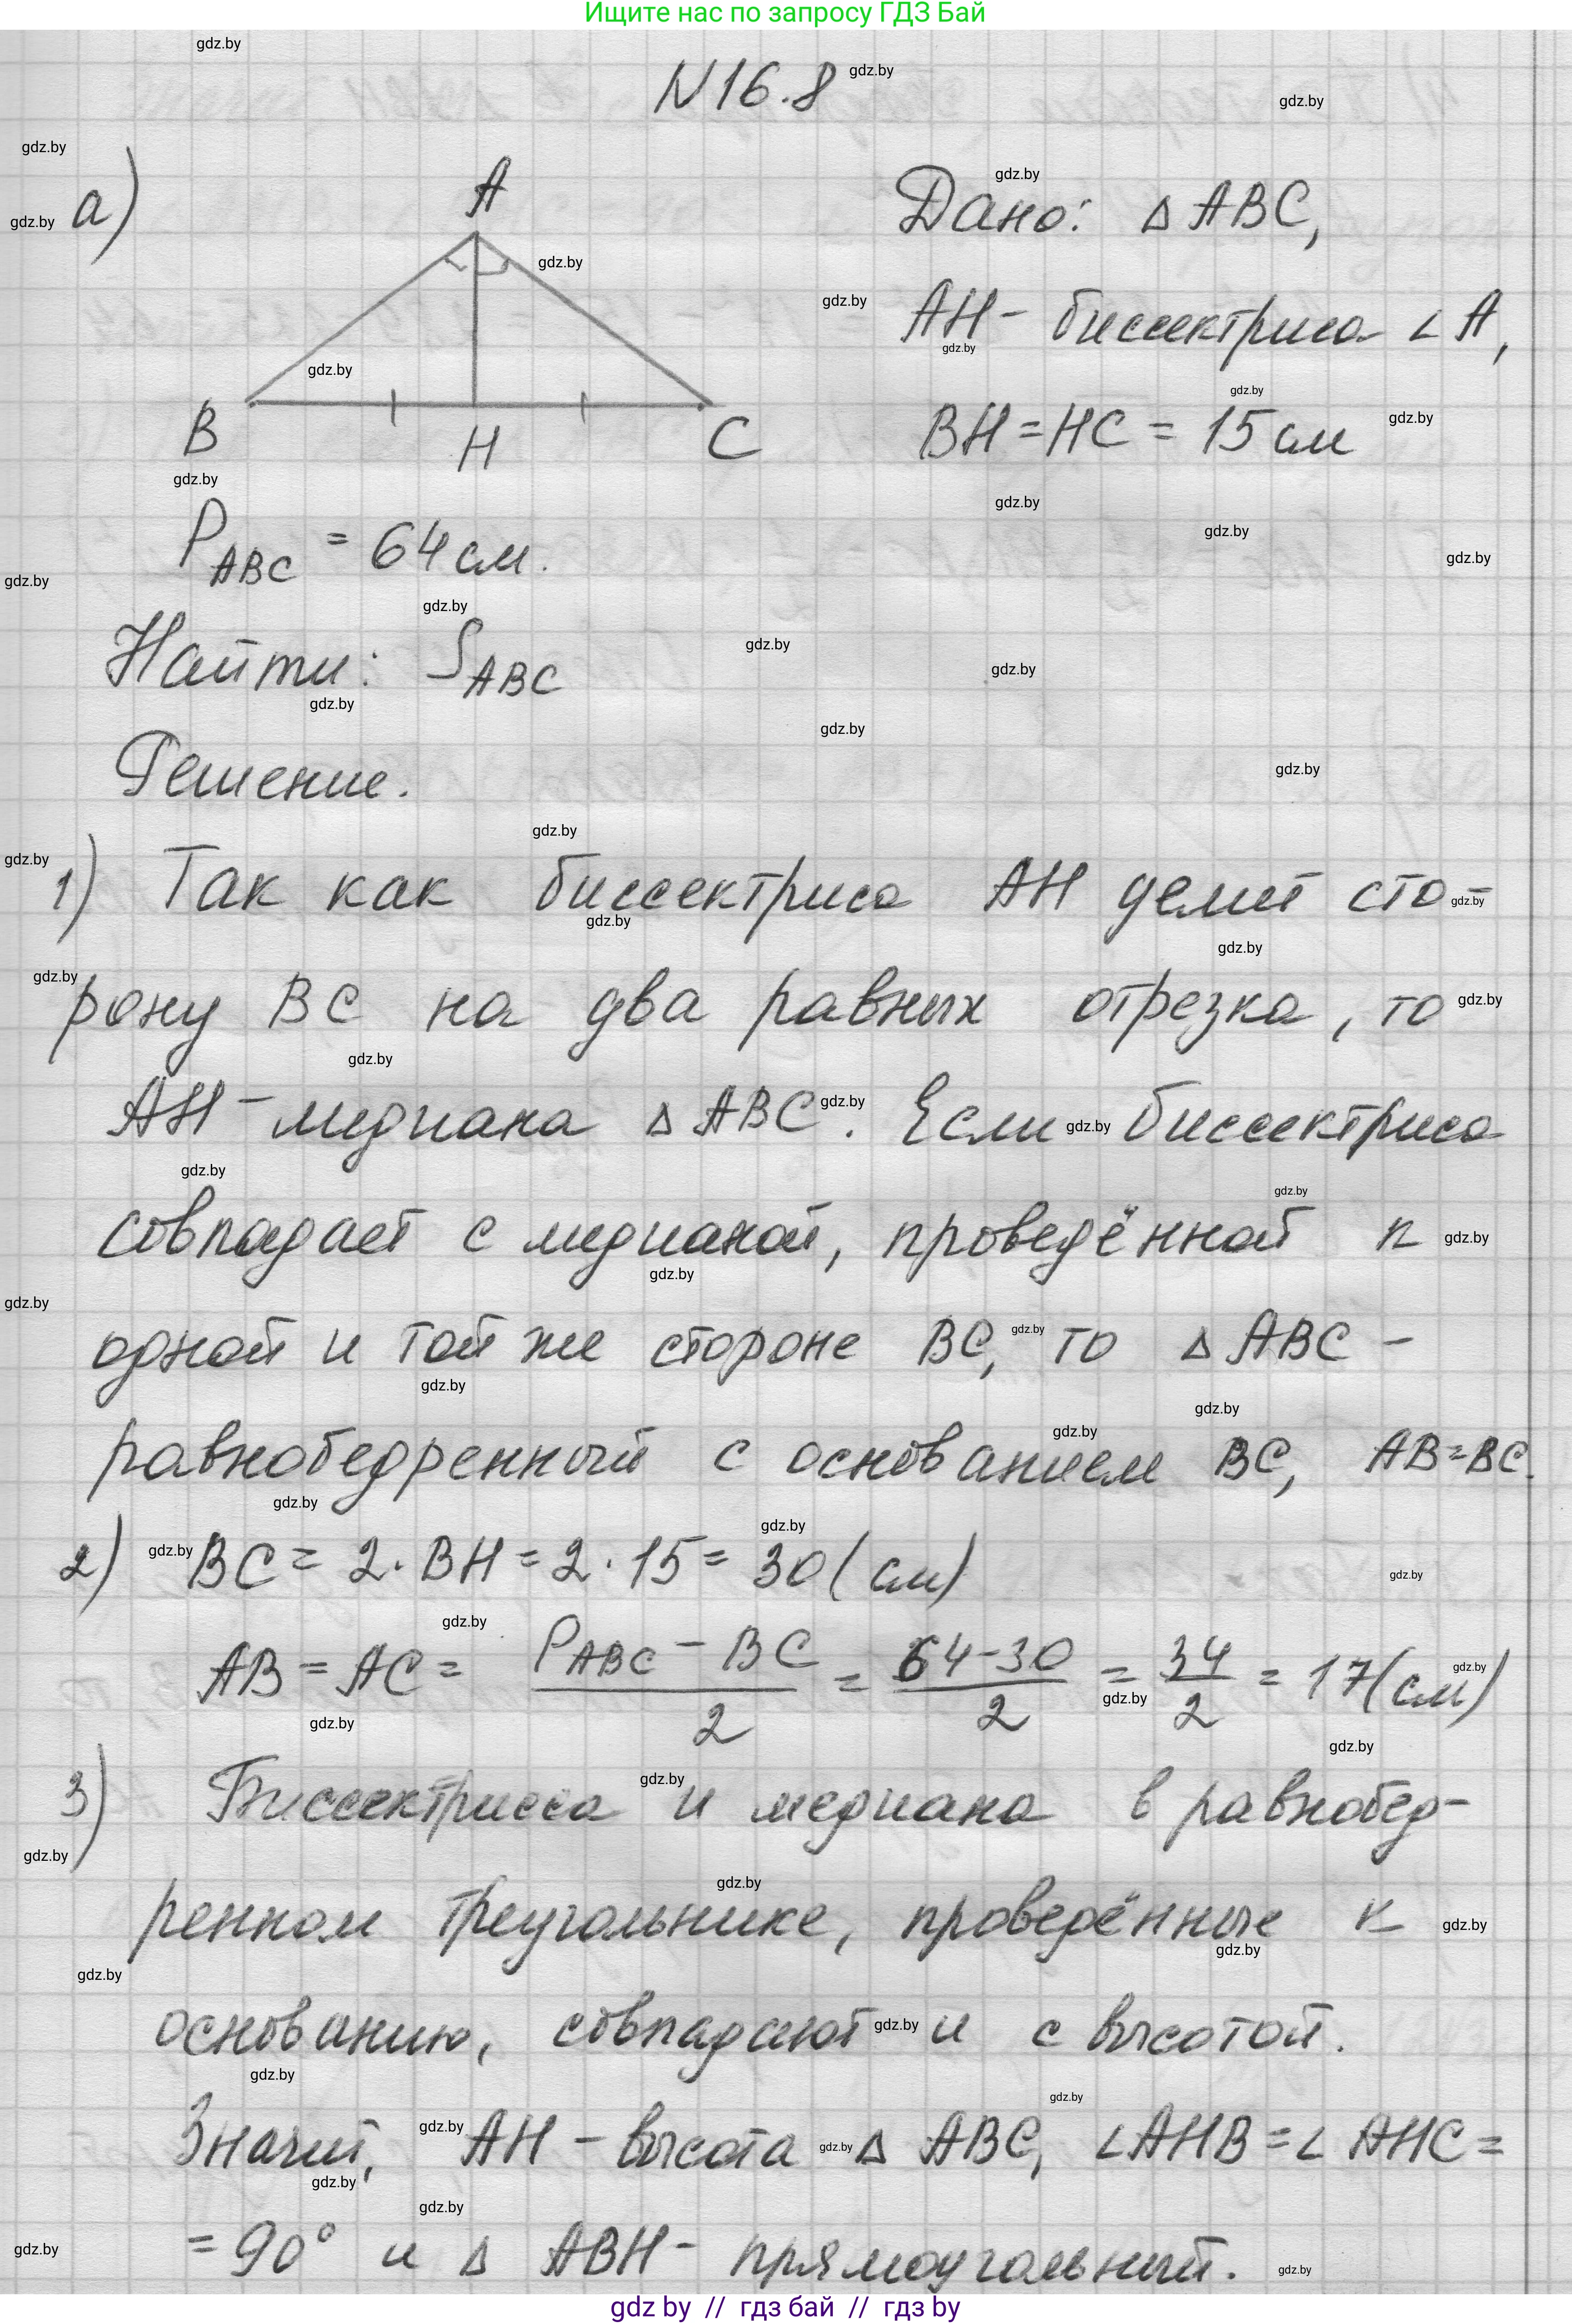 Ищите нас по запросу ГДЗ Бай
N16.8
а)
A
B
H
C
Дано: △ABC,
AH - биссектриса ∠A,
BH = HC = 15 см
P ABC = 64 см.
Найти: S ABC
Решение.
1) Так как биссектриса AH делит сто-
рону BC на два равных отрезка, то
AH - медиана △ABC. Если биссектриса
совпадает с медианой, проведённой к
одной и той же стороне BC, то △ABC -
равнобедренный с основанием BC, AB=BC.
2) BC = 2·BH = 2·15 = 30 (см)
AB = AC = (P ABC - BC)/2 = (64-30)/2 = 34/2 = 17 (см)
3) Биссектрисса и медиана в равнобед-
ренном треугольнике, проведённые к
основанию, совпадают и с высотой.
Значит, AH - высота △ABC, ∠AHB = ∠AHC =
= 90° и △ABH - прямоугольный.
gdz by // гдз бай // гдз by